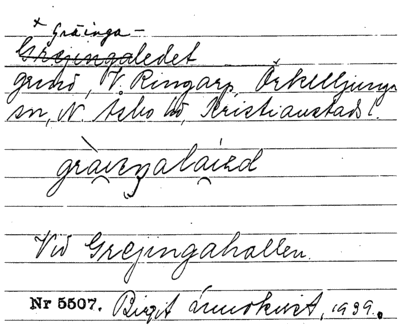 × Gräinga-
Grejingaledet
grind, V. Ringarp, Örkelljunga
sn, N. Åsbo hd, Kristianstads l.
Vid Grejingahallen.
Nr 5507. Birgit Lindkvist, 1939.